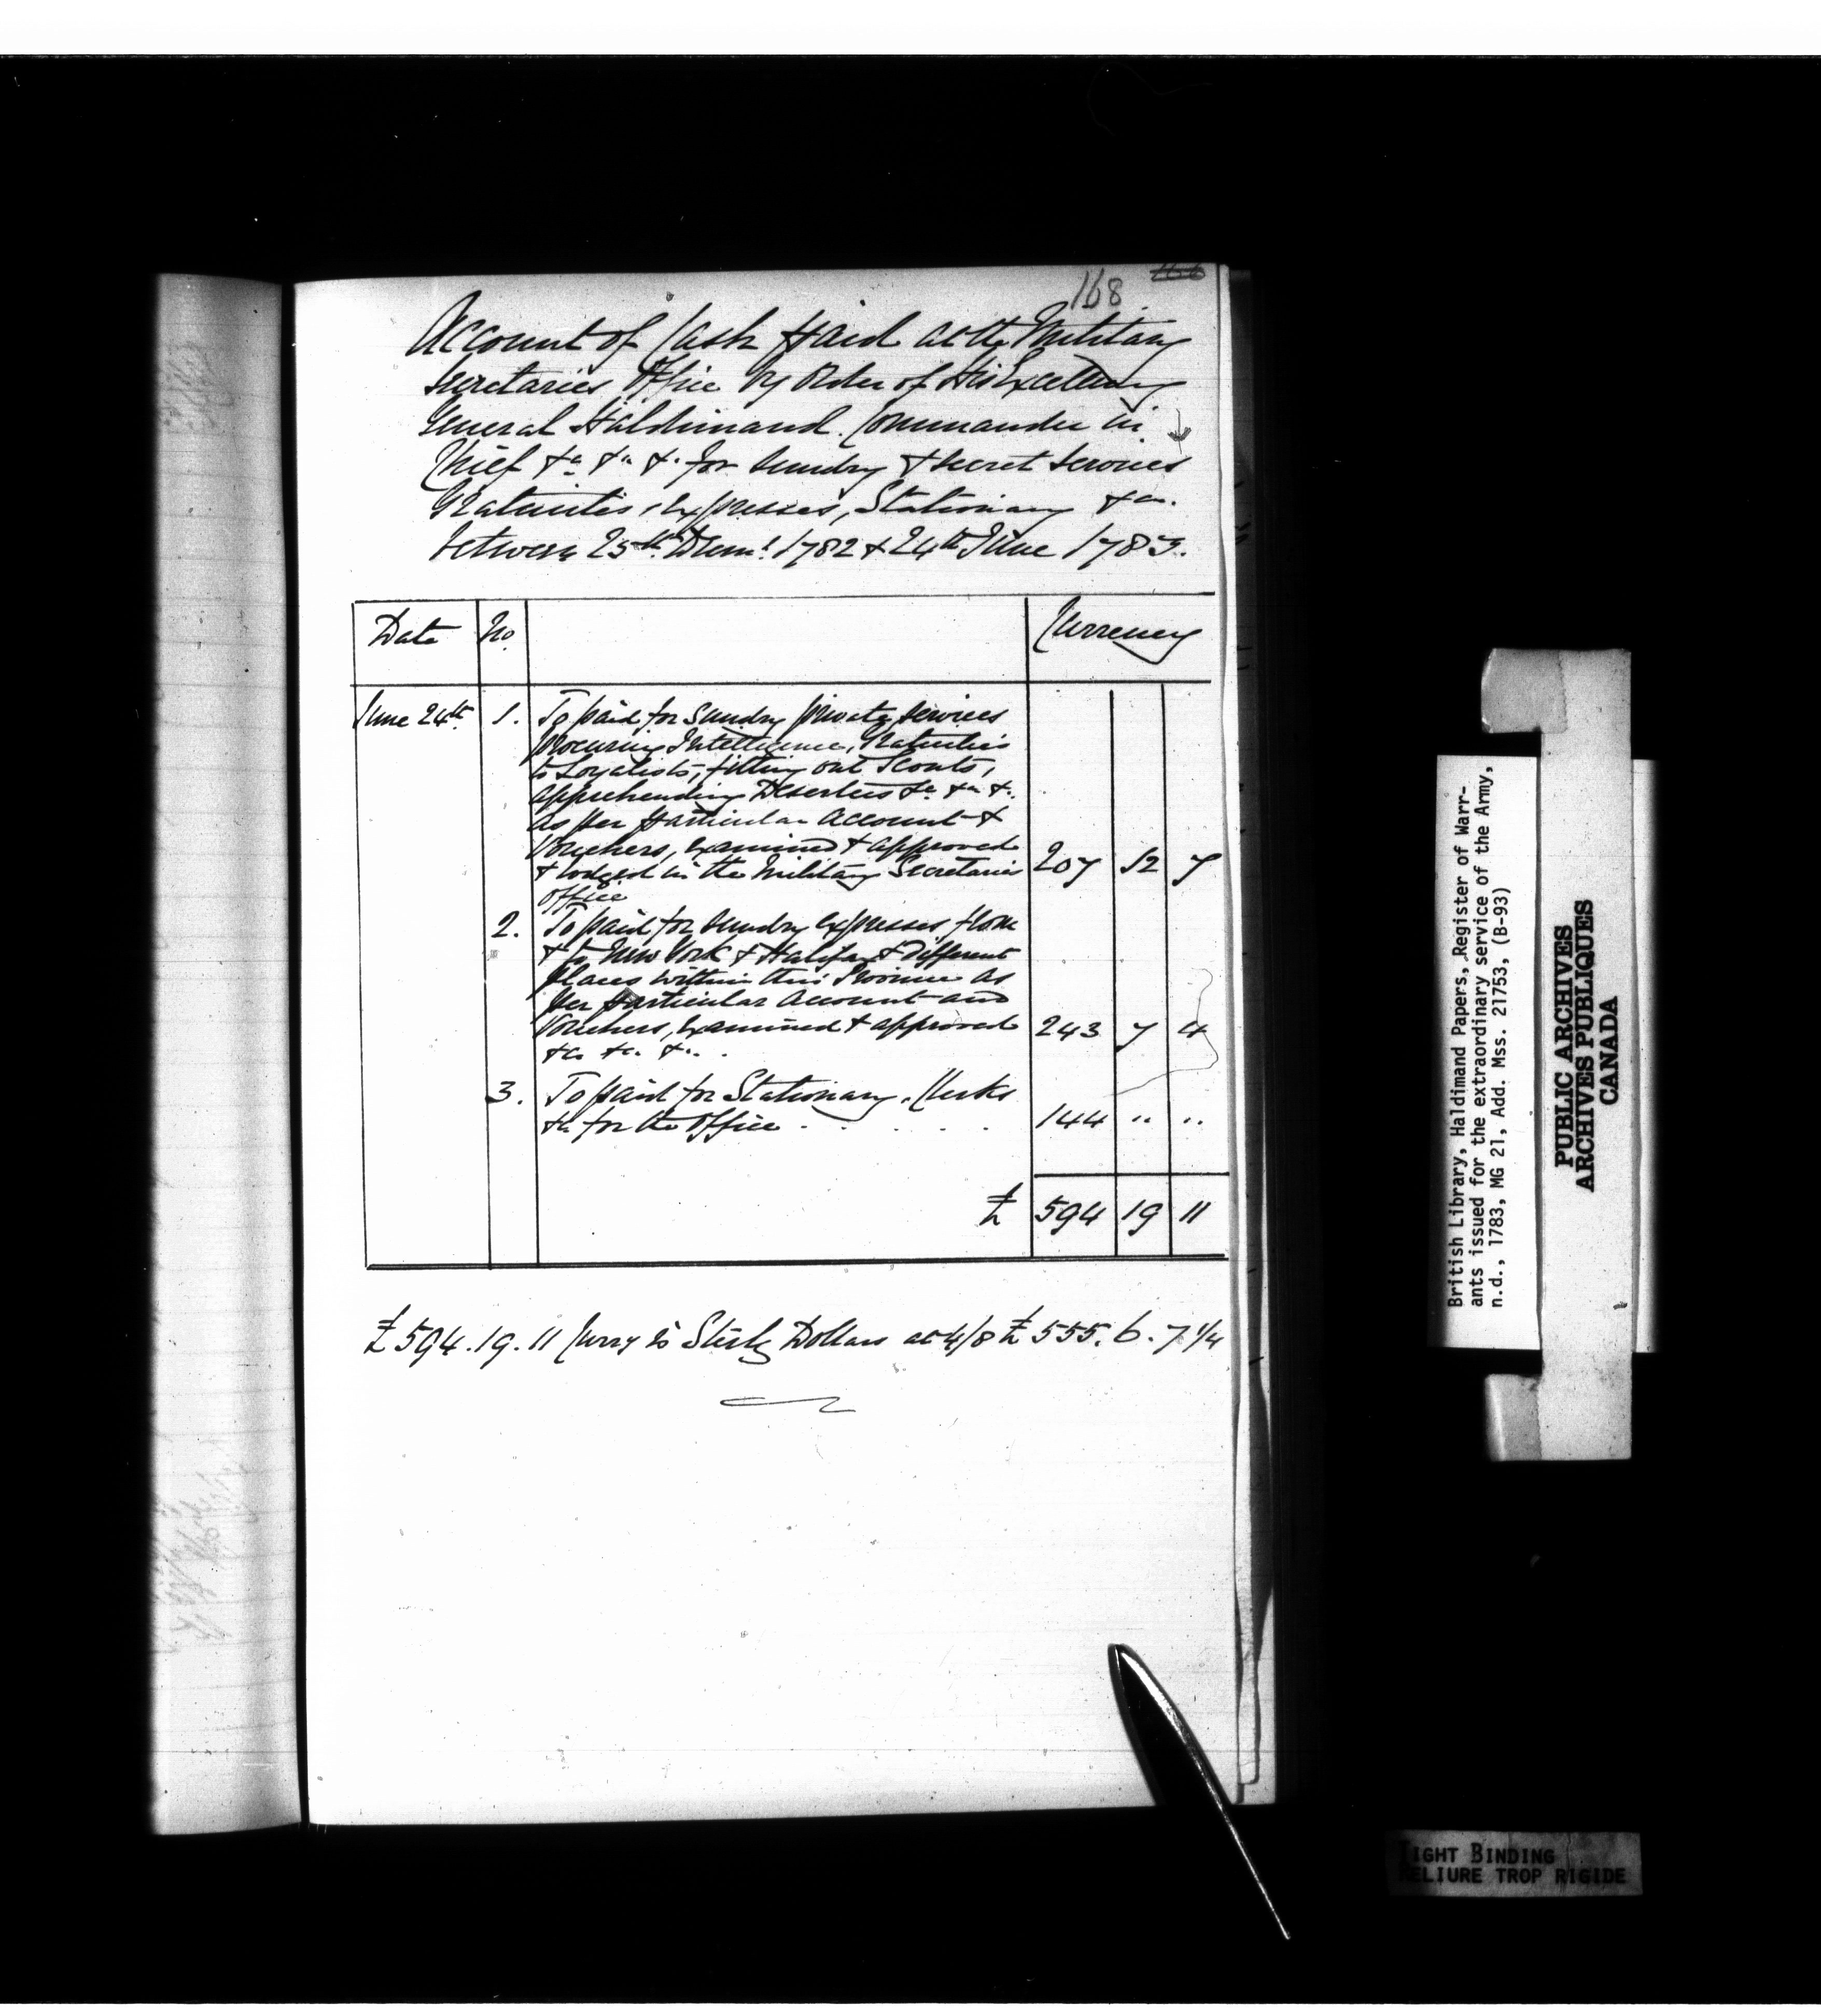 168
Account of Cash paid at the Military
Secretaries Office by Order of His Excellency
General Haldimand. Commander in
Chief &c &c &c for Sundry & Secret Services
Gratuities, Expresses, Stationary &ca.
between 25th Decmr. 1782 & 24th June 1783.
Date No. Currency
June 24th 1. To paid for Sundry private services
procuring Intelligence, Gratuities
to Loyalists, fitting out Scouts,
apprehending Deserters &c &c &c.
as per particular account &
Vouchers, examined & approved
& lodged in the Military Secretaries 207 12 7
office
2. To paid for Sundry expresses from
& to New York & Halifax & different
places within this Province as
per particular account and
Vouchers, examined & approved 243 7 4
&c &c &c.
3. To paid for Stationary, Clerks
&c for the office . . . . . 144 " "
£ 594 19 11
£594.19.11 Curry is Sterlg Dollars at 4/8 £555.6.7 1/4
British Library, Haldimand Papers, Register of Warr-
ants issued for the extraordinary service of the Army,
n.d., 1783, MG 21, Add. Mss. 21753, (B-93)
PUBLIC ARCHIVES
ARCHIVES PUBLIQUES
CANADA
TIGHT BINDING
RELIURE TROP RIGIDE